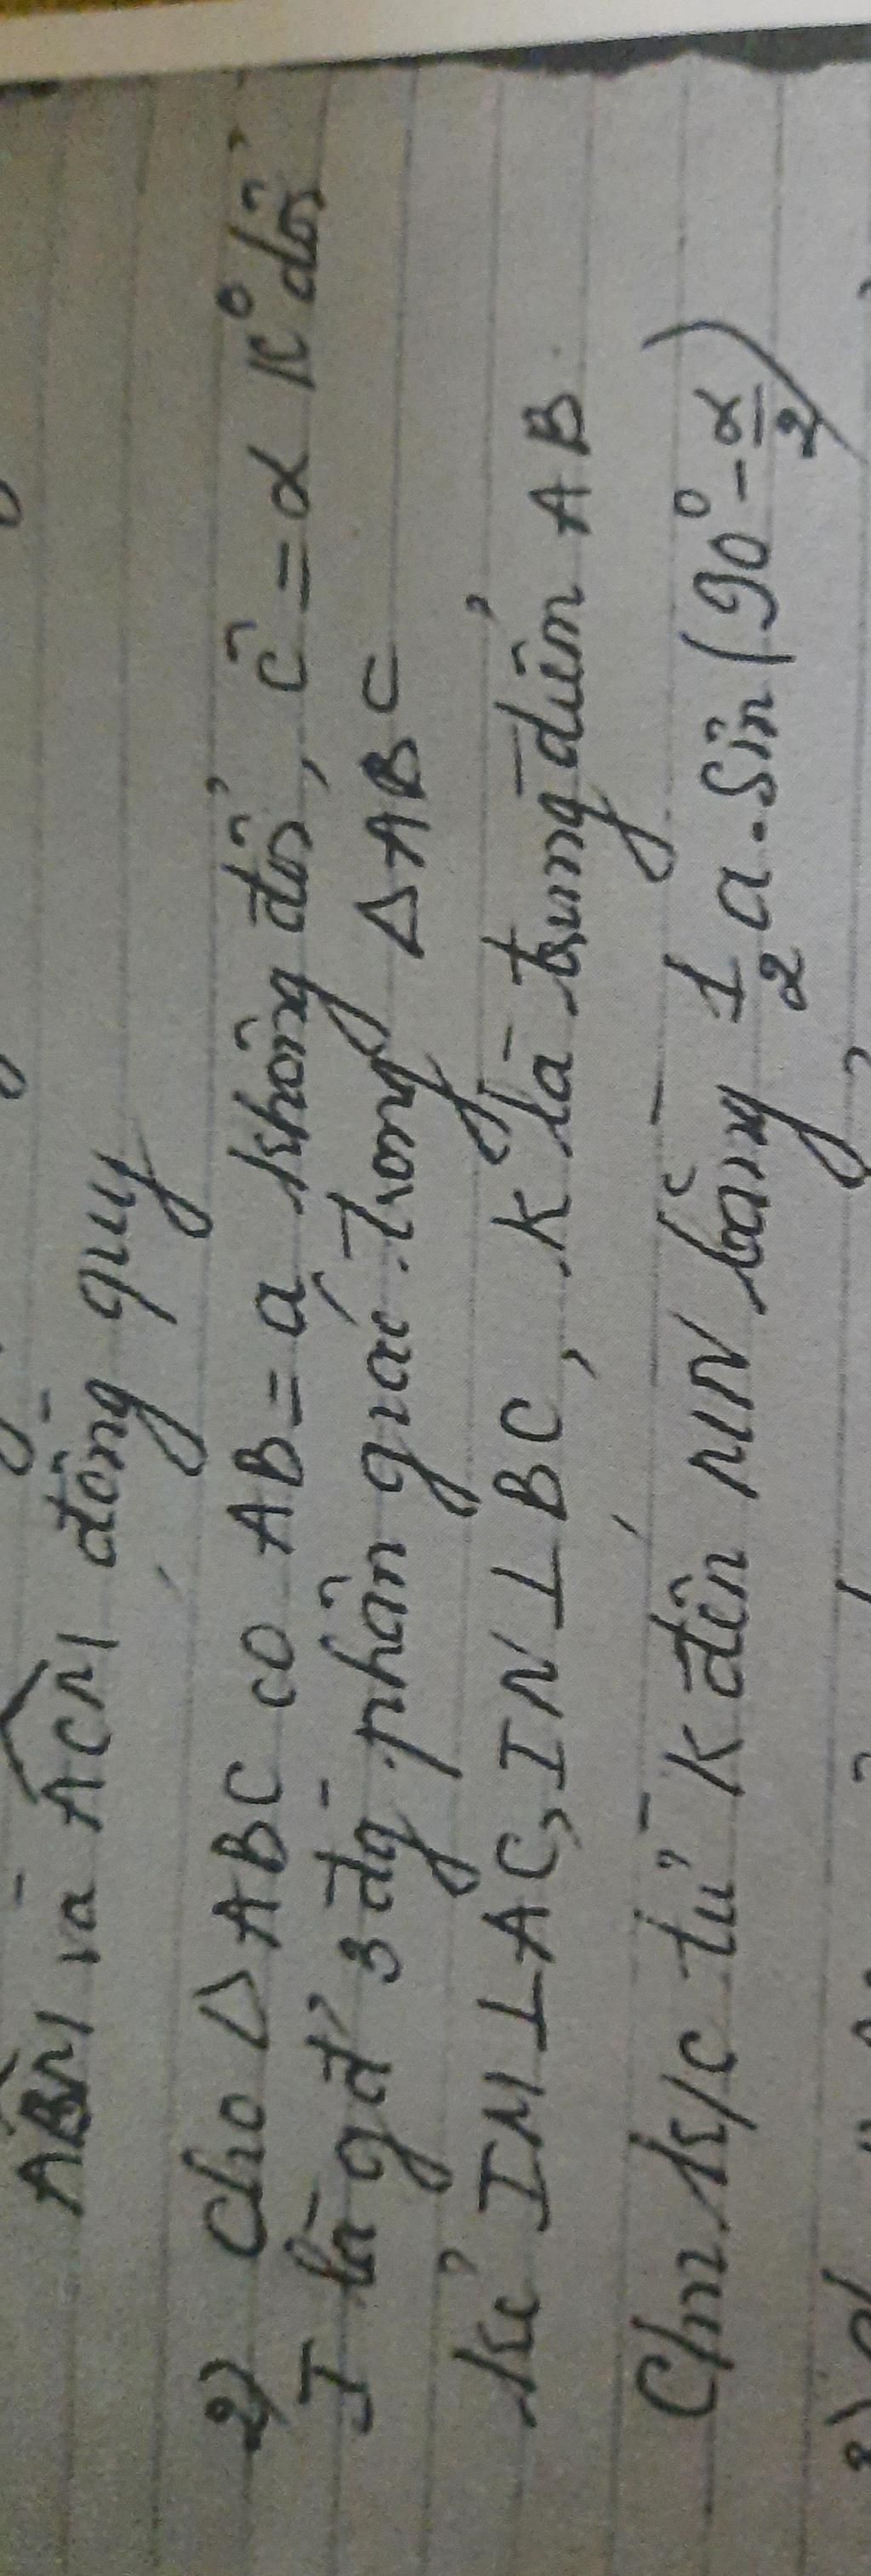 ABM và ACM đồng quy
2) Cho △ABC có AB = a không đổi, Ĉ = α k° đổi
I là gđ 3 đg phân giác trong △ABC
kẻ IM⊥AC, IN⊥BC, K là trung điểm AB
Cm k/c từ K đến MN bằng 1/2 a.sin(90° - α/2)
3)